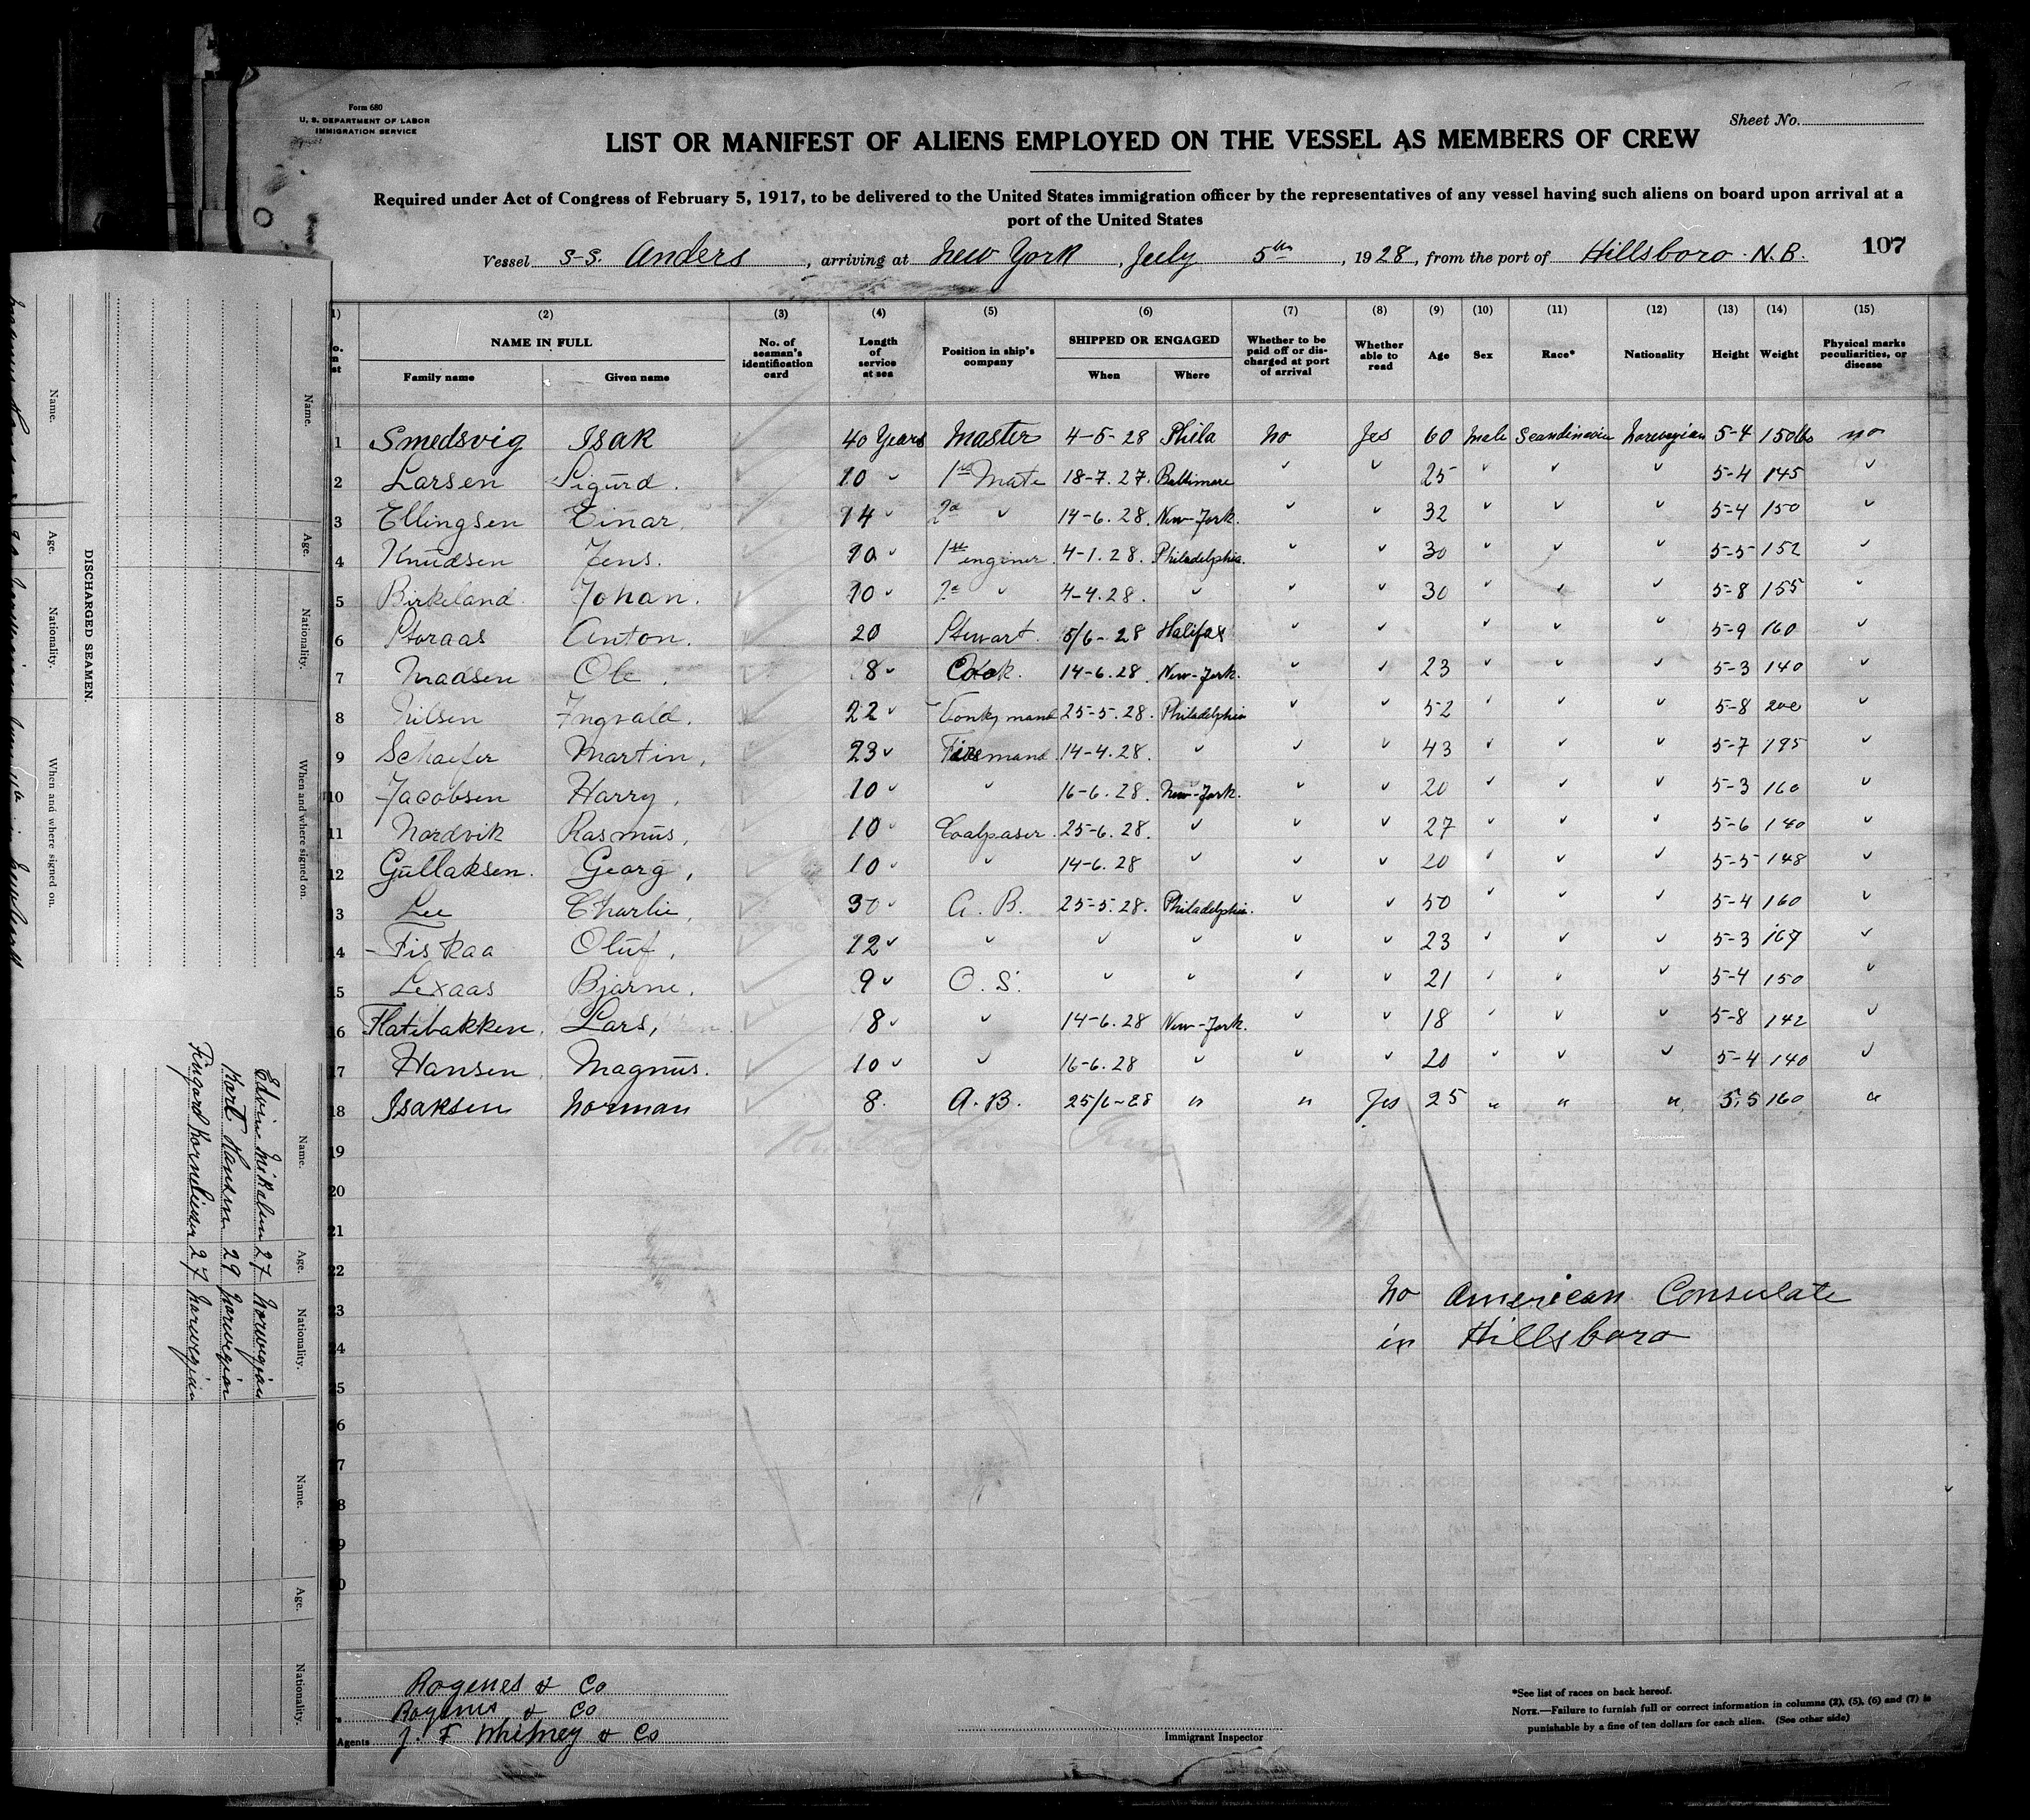 Form 680
U. S. DEPARTMENT OF LABOR
IMMIGRATION SERVICE
Sheet No.
LIST OR MANIFEST OF ALIENS EMPLOYED ON THE VESSEL AS MEMBERS OF CREW
Required under Act of Congress of February 5, 1917, to be delivered to the United States immigration officer by the representatives of any vessel having such aliens on board upon arrival at a
port of the United States
Vessel S-S. Anders, arriving at New York, July 5th, 1928, from the port of Hillsboro N.B. 107
(2) (3) (4) (5) (6) (7) (8) (9) (10) (11) (12) (13) (14) (15)
NAME IN FULL No. of seaman's identification card Length of service at sea Position in ship's company SHIPPED OR ENGAGED Whether to be paid off or discharged at port of arrival Whether able to read Age Sex Race* Nationality Height Weight Physical marks peculiarities, or disease
Family name Given name When Where
1 Smedsvig Isak 40 Years Master 4-5-28 Phila No Yes 60 Male Scandinavien Norwegian 5-4 150 lbs no
2 Larsen Sigurd. 10 ✓ 1st Mate 18-7.27. Baltimore ✓ ✓ 25 ✓ ✓ ✓ 5-4 145 ✓
3 Ellingsen Einar, 14 ✓ 2d ✓ 14-6.28. New-York. ✓ ✓ 32 ✓ ✓ ✓ 5-4 150 ✓
4 Knudsen Jens. 10 ✓ 1st enginer. 4-1.28. Philadelphia. ✓ ✓ 30 ✓ ✓ ✓ 5-5 152 ✓
5 Birkeland Johan. 10 ✓ 2d ✓ 4-4.28. ✓ ✓ ✓ 30 ✓ ✓ ✓ 5-8 155 ✓
6 Storaas Anton. 20 Stewart. 5/6-28 Halifax ✓ ✓ ✓ ✓ ✓ 5-9 160 ✓
7 Madsen Ole, 8 ✓ Cook. 14-6.28 New-York. ✓ ✓ 23 ✓ ✓ ✓ 5-3 140 ✓
8 Nilsen Ingvald. 22 ✓ Donkymand 25-5.28. Philadelphia ✓ ✓ 52 ✓ ✓ ✓ 5-8 200 ✓
9 Schaefer Martin, 23 ✓ Firemand. 14-4.28. ✓ ✓ ✓ 43 ✓ ✓ ✓ 5-7 195 ✓
10 Jacobsen Harry, 10 ✓ ✓ 16-6.28. New-York. ✓ ✓ 20 ✓ ✓ ✓ 5-3 160 ✓
11 Nordvik Rasmus, 10 ✓ Coalpaser. 25-6.28. ✓ ✓ ✓ 27 ✓ ✓ ✓ 5-6 140 ✓
12 Gullaksen. Georg, 10 ✓ ✓ 14-6.28 ✓ ✓ ✓ 20 ✓ ✓ ✓ 5-5 148 ✓
13 Lee Charlie, 30 ✓ A. B. 25-5.28. Philadelphia. ✓ ✓ 50 ✓ ✓ ✓ 5-4 160 ✓
14 Fiskaa Oluf, 12 ✓ ✓ ✓ ✓ ✓ ✓ 23 ✓ ✓ ✓ 5-3 167 ✓
15 Lexaas Bjarne, 9 ✓ O. S. ✓ ✓ ✓ ✓ 21 ✓ ✓ ✓ 5-4 150 ✓
16 Flatebakken, Lars, 8 ✓ ✓ 14-6.28 New-York. ✓ ✓ 18 ✓ ✓ ✓ 5-8 142 ✓
17 Hansen, Magnus. 10 ✓ ✓ 16-6.28 ✓ ✓ ✓ 20 ✓ ✓ ✓ 5-4 140 ✓
18 Isaksen Norman 8. A. B. 25/6-28 " " Yes 25 " " " 5.5 160 "
19
20
21
22
23
24
25
26
No American Consulate
in Hillsboro
Rogenes & Co
Rogenes & Co
Agents J. F. Whitney & Co
Immigrant Inspector
*See list of races on back hereof.
NOTE.—Failure to furnish full or correct information in columns (2), (5), (6) and (7) is
punishable by a fine of ten dollars for each alien. (See other side)
DISCHARGED SEAMEN.
Name. Age. Nationality. When and where signed on.
Name. Age. Nationality. When and where signed on.
Name. Age. Nationality.
Edvin Mikalsen 27 Norwegian
Kort Hansen 29 Norwegian
Fingard Korneliusen 27 Norwegian
Name. Age. Nationality.